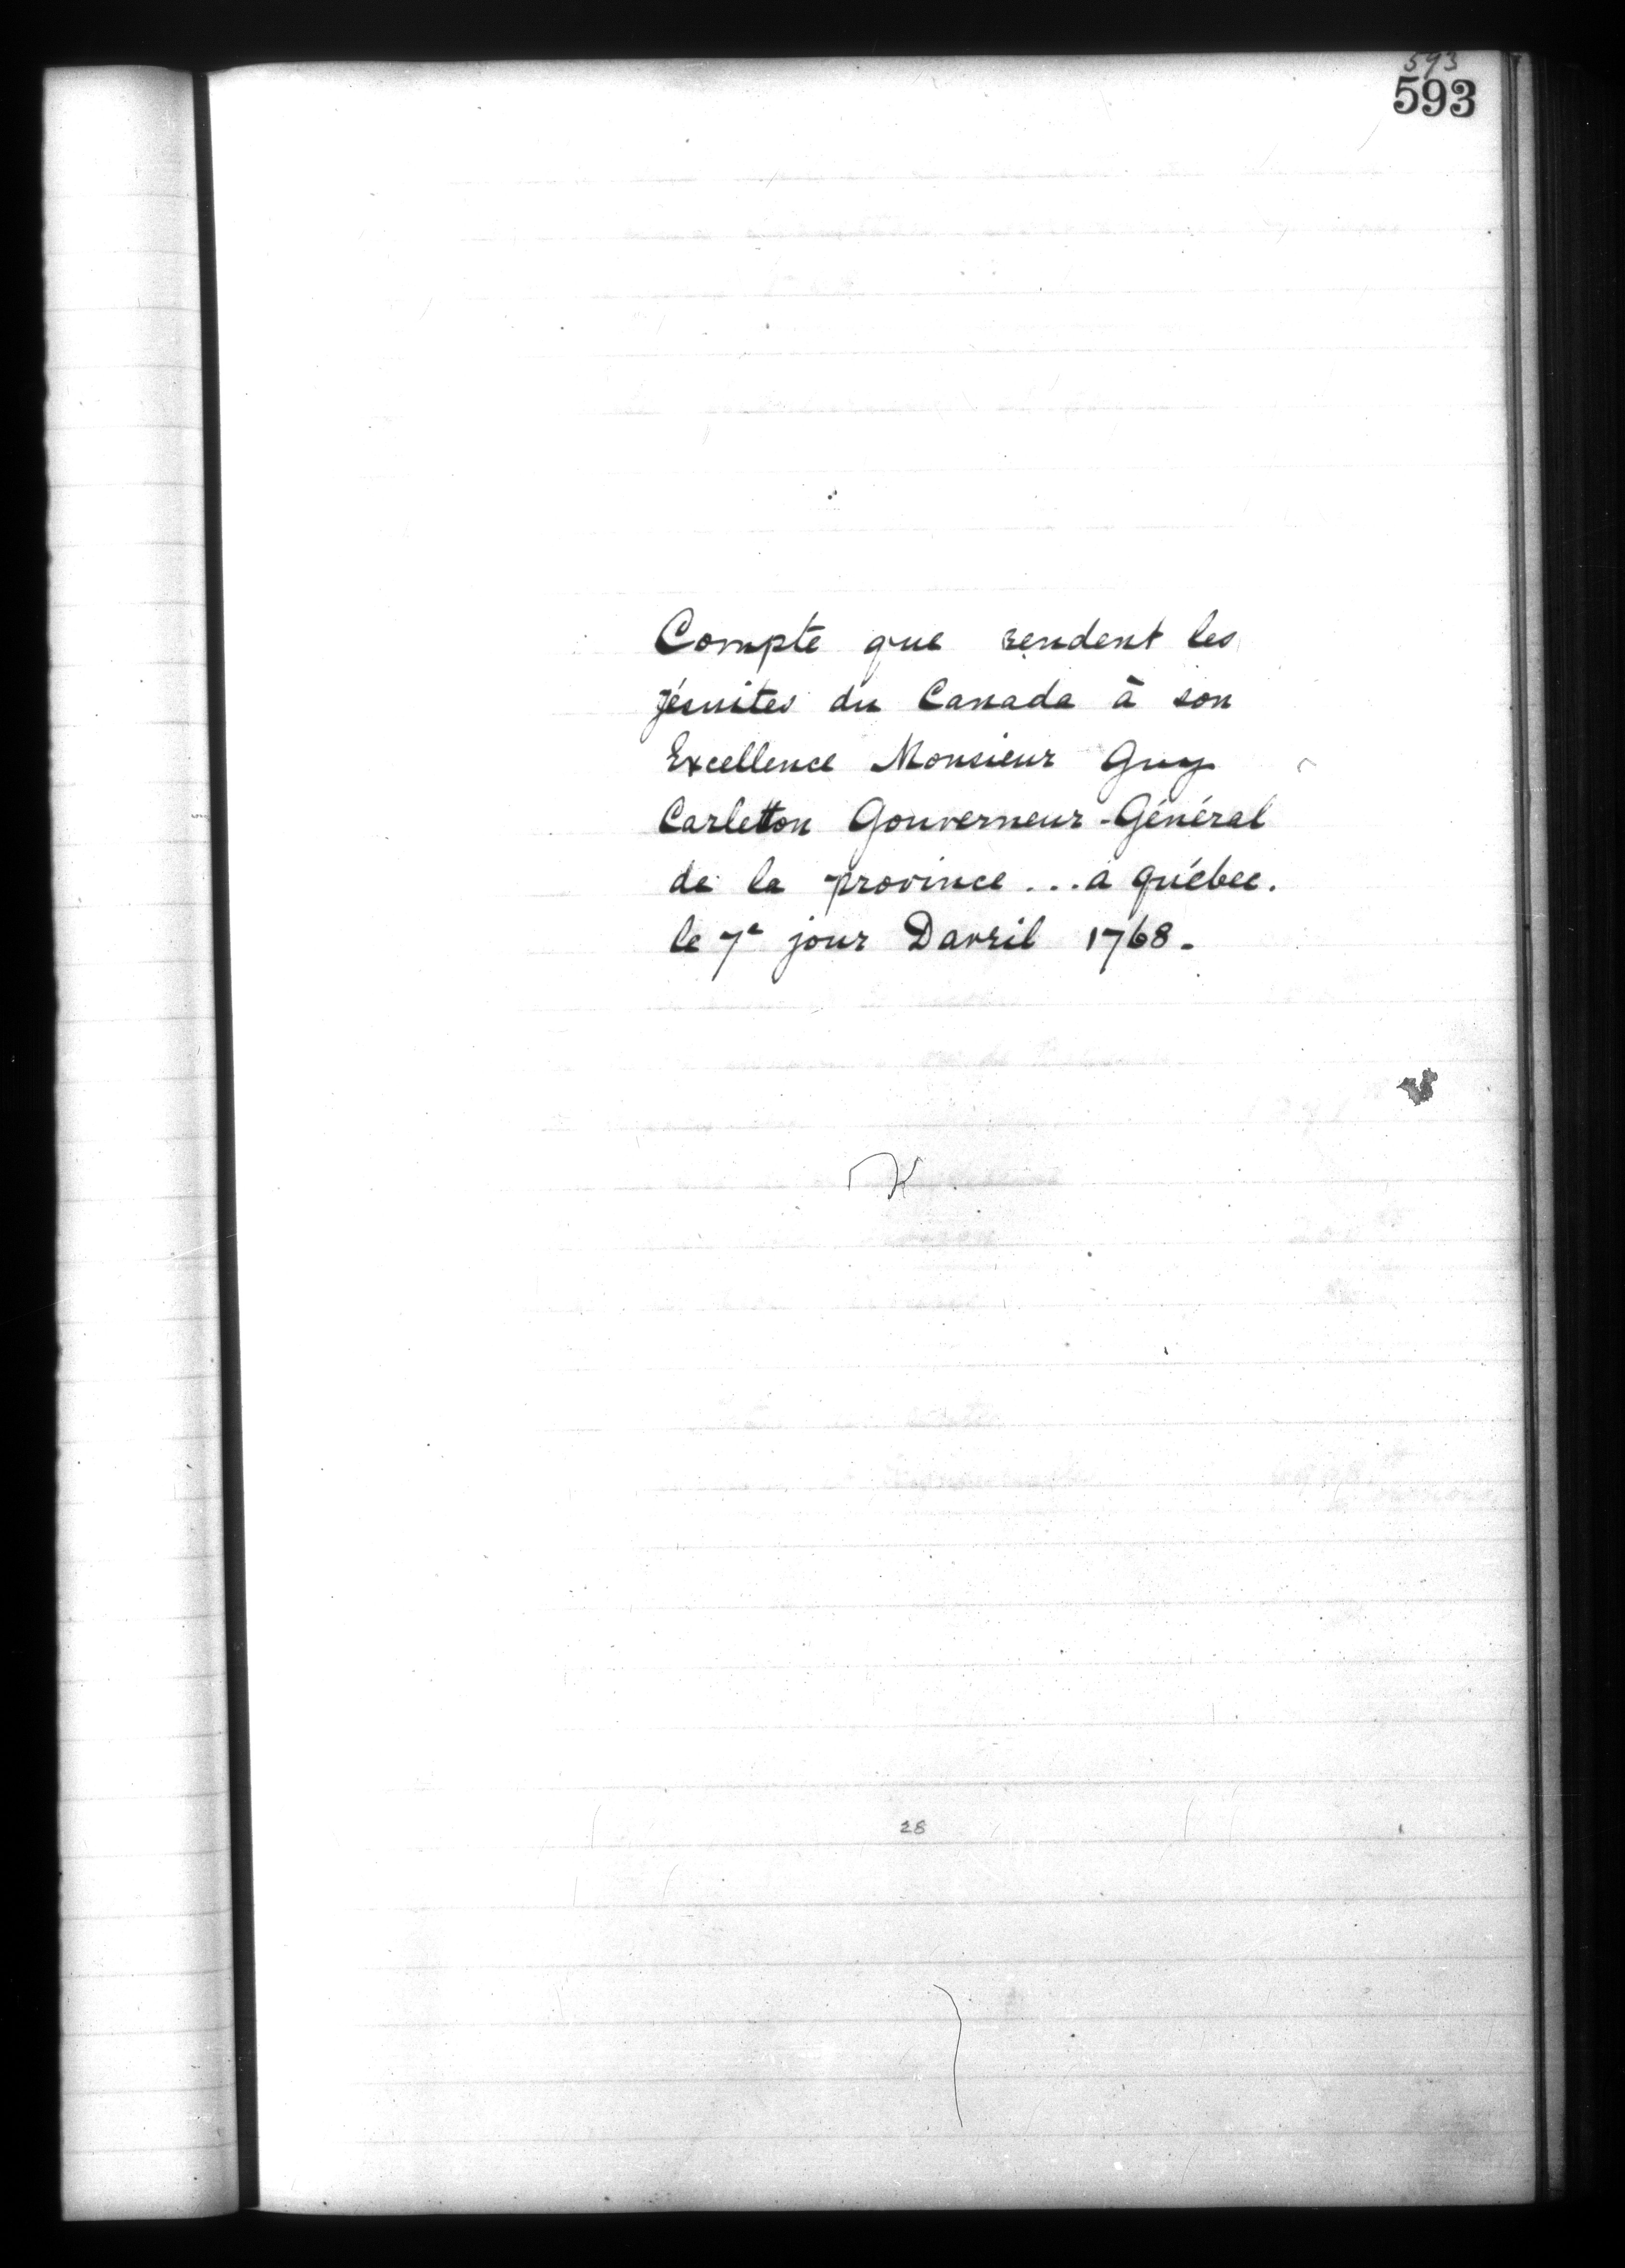 593
593
Compte que rendent les
jésuites du Canada à son
Excellence Monsieur Guy
Carletton Gouverneur-Général
de la province... à québec.
le 7e jour Davril 1768.
28